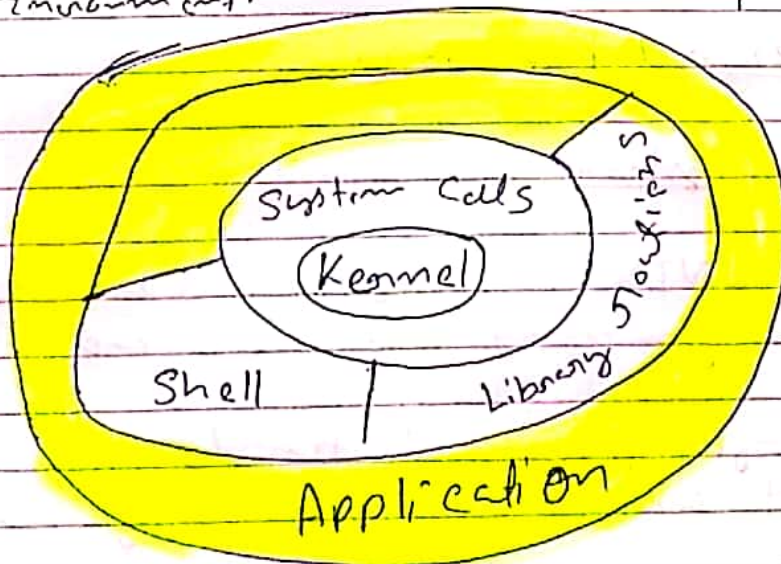 System Calls
Kernel
Shell
Library
Application